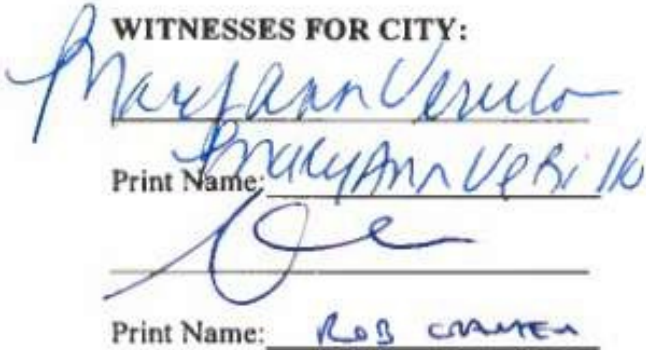 WITNESSES FOR CITY:
Mary Ann
Print Name: Mary Ann Verillo
Print Name: ROB